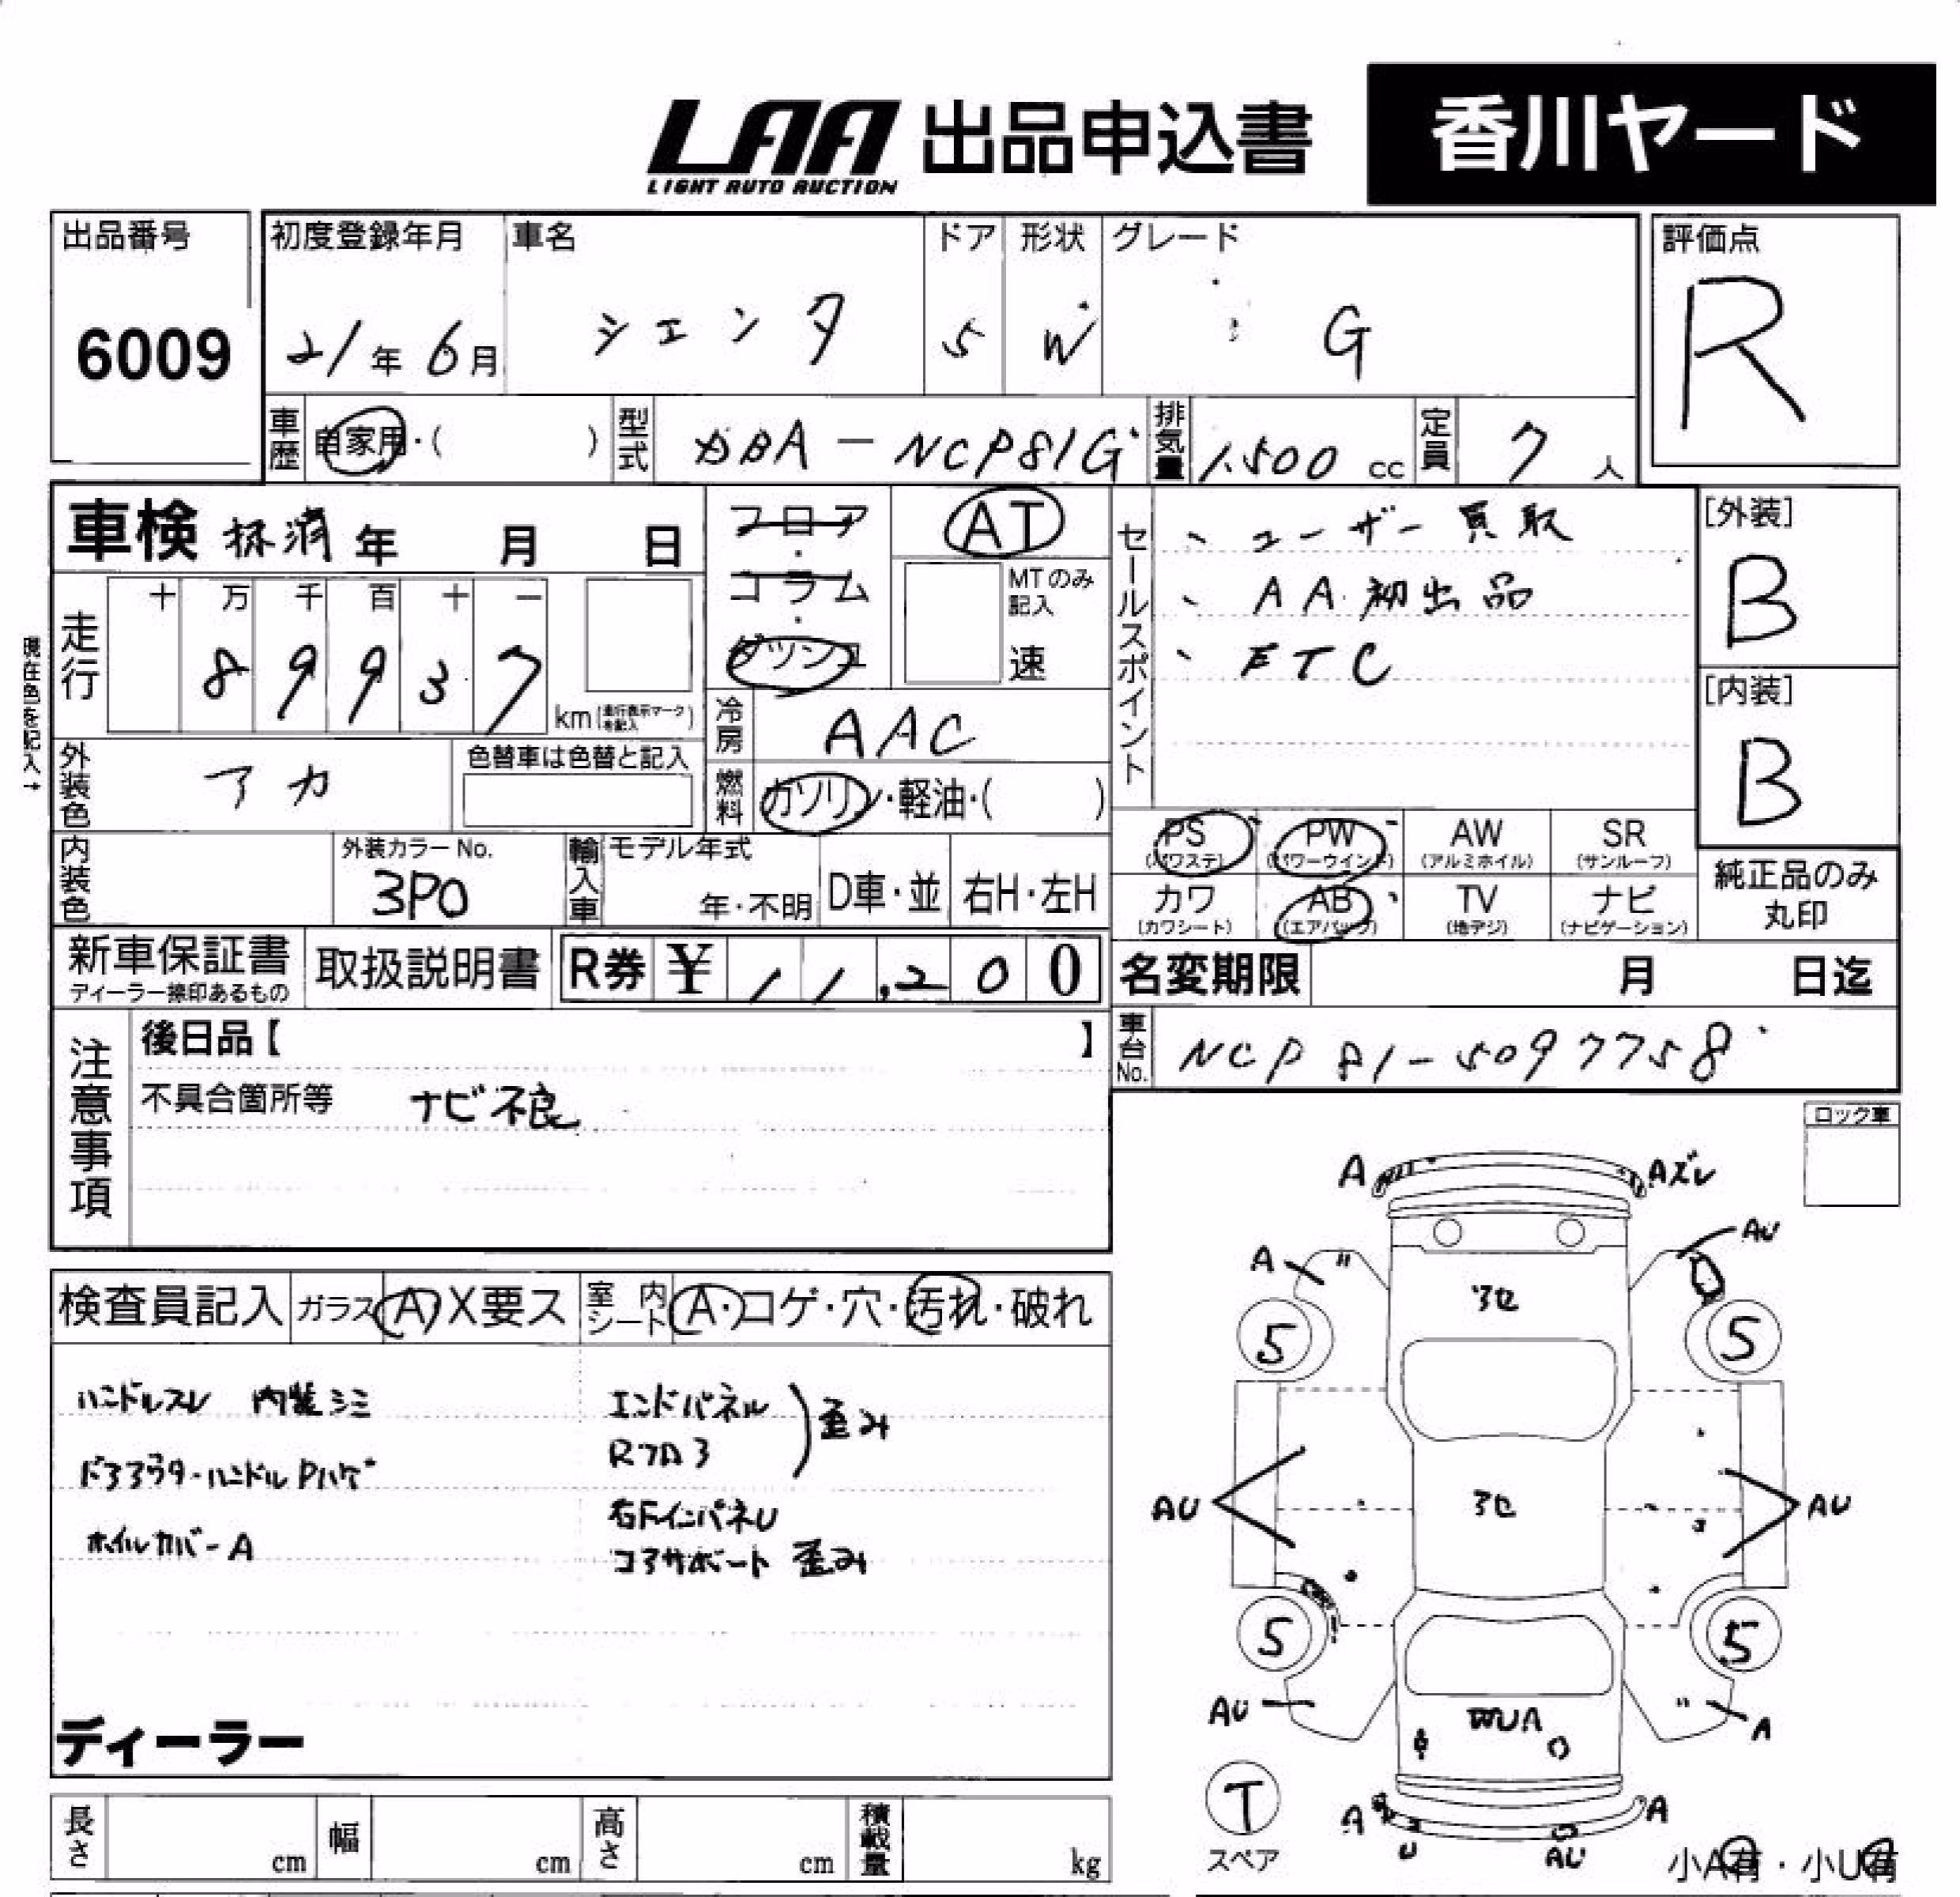 LAA 出品申込書 香川ヤード
LIGHT AUTO AUCTION
出品番号 初度登録年月 車名 ドア 形状 グレード 評価点
6009 21年6月 シエンタ 5 W G R
車歴 自家用・( ) 型式 DBA-NCP81G 排気量 1,500 cc 定員 7 人
車検 抹消 年 月 日
フロア・コラム・ダッシュ
AT
MTのみ記入
速
セールスポイント
、ユーザー買取
、AA初出品
、ETC
[外装]
B
[内装]
B
現在色を記入→
走行 十 万 千 百 十 一
8 9 9 3 7 km (走行表示マークを記入)
冷房 AAC
外装色 アカ 色替車は色替と記入
燃料 ガソリン・軽油・( )
内装色 外装カラーNo. 3P0
輸入車 モデル年式 年・不明 D車・並 右H・左H
PS (パワステ) PW (パワーウインド) AW (アルミホイル) SR (サンルーフ)
カワ (カワシート) AB (エアバッグ) TV (地デジ) ナビ (ナビゲーション)
純正品のみ
丸印
新車保証書 取扱説明書 R券 ¥ 1 1,2 0 0
ディーラー捺印あるもの
名変期限 月 日迄
車台No. NCP81-5097758
注意事項
後日品【 】
不具合箇所等 ナビ不良
ロック車
検査員記入 ガラス A X要ス 室内シート A・コゲ・穴・汚れ・破れ
ハンドルスレ 内装シミ
ホイルカバーA
エンドパネル
Rフロ3
歪み
右FインパネU
コアサポート 歪み
ディーラー
A Aズレ
A AU
5 5
AU AU
5 5
AU A
T
スペア
A A
U AU
小A有・小U有
長さ cm 幅 cm 高さ cm 積載量 kg